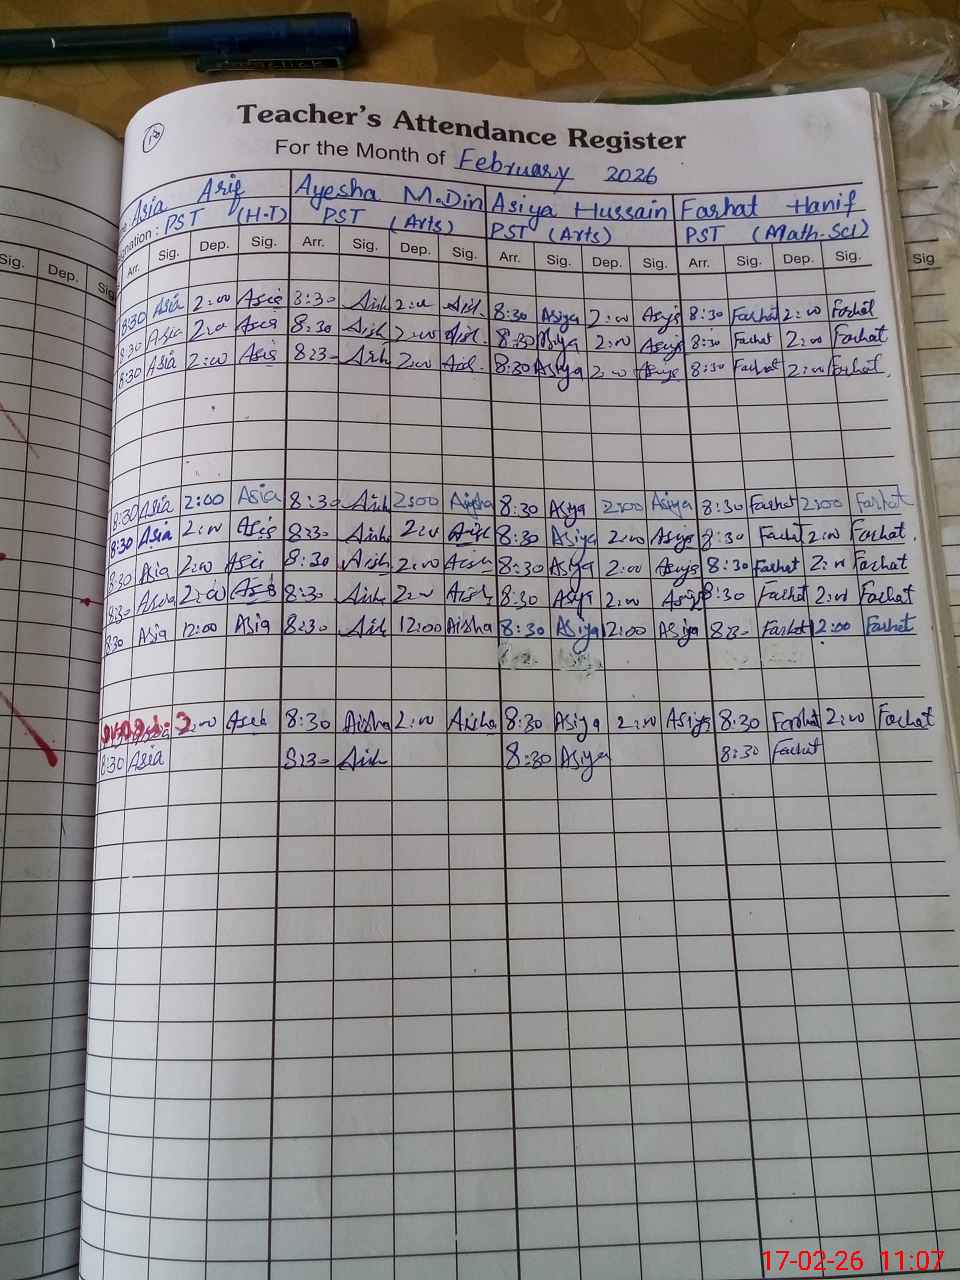 18
Teacher's Attendance Register
For the Month of February 2026
Asia Arif Ayesha M.Din Asiya Hussain Farhat Hanif
nation: PST (H-T) PST (Arts) PST (Arts) PST (Math-Sci)
Sig. Dep. Sig. Arr. Sig. Dep. Sig. Arr. Sig. Dep. Sig. Arr. Sig. Dep. Sig. Arr. Sig. Dep. Sig. Sig
8:30 Asia 2:00 Asia 8:30 Aish 2:00 Aish. 8:30 Asiya 2:00 Asiya 8:30 Farhat 2:00 Farhat
8:30 Asia 2:00 Asia 8:30 Aish 2:00 Aish. 8:30 Asiya 2:00 Asiya 8:30 Farhat 2:00 Farhat
8:30 Asia 2:00 Asia 8:30 Aish 2:00 Aish. 8:30 Asiya 2:00 Asiya 8:30 Farhat 2:00 Farhat.
8:30 Asia 2:00 Asia 8:30 Aish 2:00 Aisha 8:30 Asiya 2:00 Asiya 8:30 Farhat 2:00 Farhat
8:30 Asia 2:00 Asia 8:30 Aish 2:00 Aish 8:30 Asiya 2:00 Asiya 8:30 Farhat 2:00 Farhat.
8:30 Asia 2:00 Asia 8:30 Aish 2:00 Aish 8:30 Asiya 2:00 Asiya 8:30 Farhat 2:00 Farhat
8:30 Asia 2:00 Asia 8:30 Aish 2:00 Aish 8:30 Asiya 2:00 Asiya 8:30 Farhat 2:00 Farhat
8:30 Asia 12:00 Asia 8:30 Aish 12:00 Aisha 8:30 Asiya 12:00 Asiya 8:30 Farhat 12:00 Farhat
2:00 Asia 8:30 Aisha 2:00 Aisha 8:30 Asiya 2:00 Asiya 8:30 Farhat 2:00 Farhat
8:30 Asia 8:30 Aish 8:30 Asiya 8:30 Farhat
17-02-26 11:07